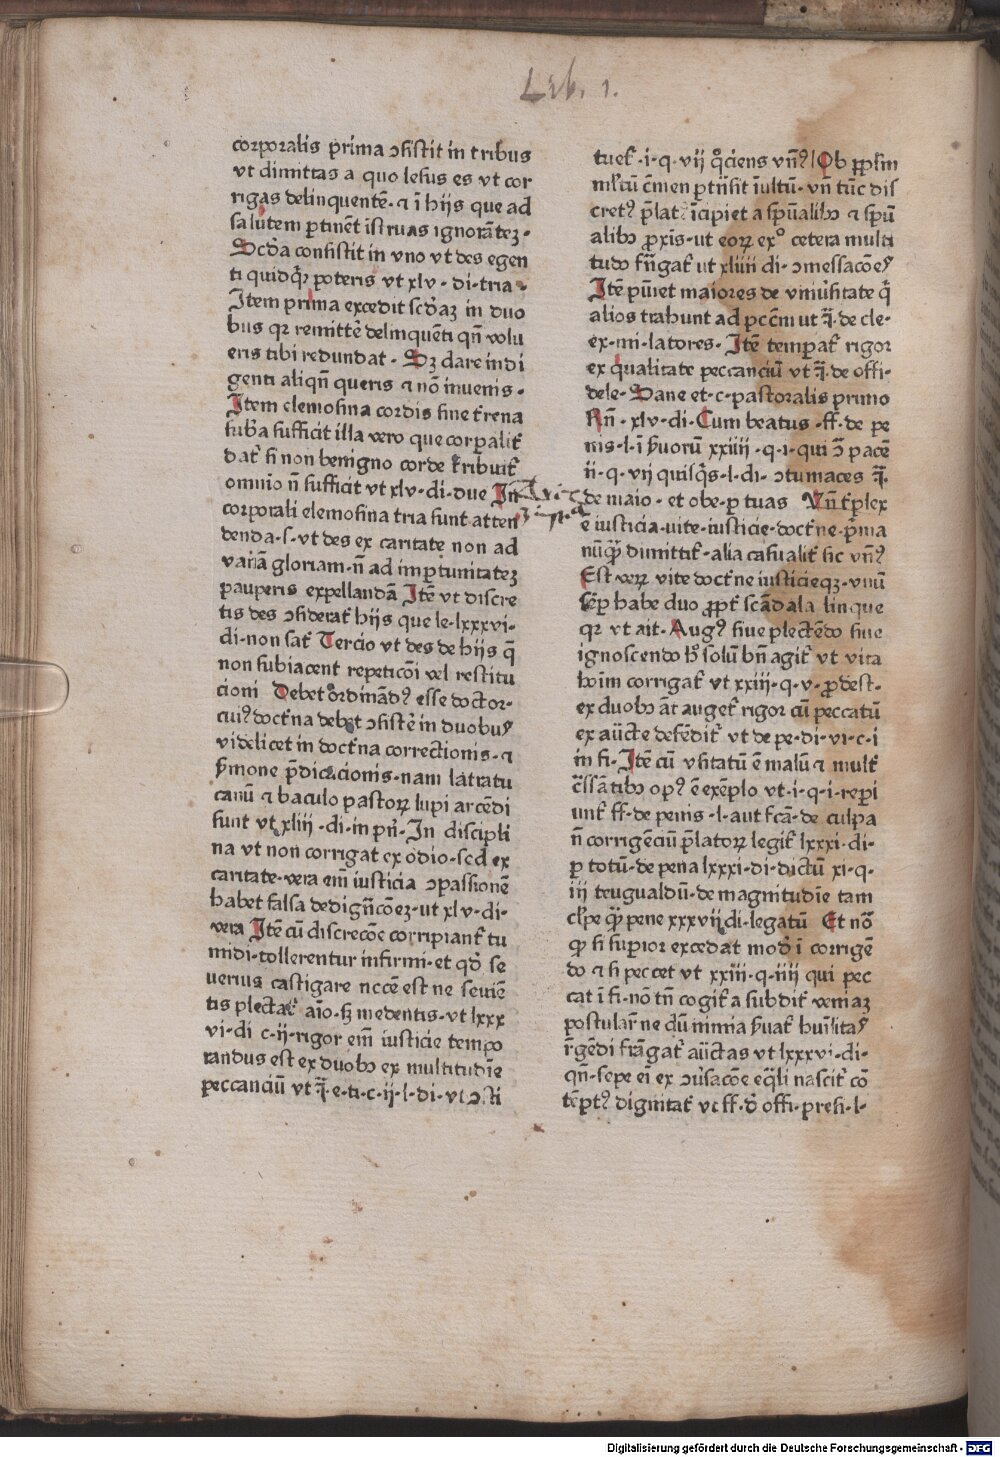 Lib. 1.
corporalis prima ↄsistit in tribus
vt dimittas a quo lesus es vt cor
rigas delinquentē· ⁊ ī hijs que ad
salutem ꝑtinēt īstruas ignorātez·
Scd̄a consistit in vno vt des egen
ti quidqͥ poteris vt xlv· di·tria·
Item prima excedit scd̄aꝫ in duo
bus qꝛ remittē delinquēti qn̄ volu
eris tibi redundat· Sꝫ dare indi
genti aliqn̄ queris ⁊ nō inuenis·
Item elemosina cordis sine t̄rena
sub̄a sufficit illa vero que corꝑalit᷑
dat᷑ si non benigno corde t̄ribuit᷑
omnīo n̄ sufficit vt xlv·di·due In
corporali elemosina tria sunt atten
denda·s·vt des ex caritate non ad
vanā gloriam·n̄ ad imꝑtunitateꝫ
pauperis expellandā Itē vt discre
tis des ↄsiderat᷑ hijs que le·lxxxvi·
di·non sat᷑ Tercio vt des de hijs q̄
non subiacent repeticōi vel restitu
cioni Debet ordināდ esse doctor·
cuiꝰ doct̄na debet ↄsistē in duobuꝰ
videlicet in doct̄na correctionis·⁊
s̄mone p̄dicacionis·nam latratu
canū ⁊ baculo pastoꝝ lupi arcēdi
sunt vt xliij ·di·in pn̄·In discipli
na vt non corrigat ex odio·sed ex
caritate·vera em̄ iusticia ↄpassionē
habet falsa dedign̄cōeꝫ·ut xlv·di·
vera Itē cū discrecōe corripiant᷑ tu
midi·tollerentur infirmi·et qd̄ se
verius castigare nccē est ne seuiē
tis plectat᷑ aīo·sꝫ medentis·vt lxxx
vi·di c·ij·rigor em̄ iusticie tempo
randus est ex duobꝰ ex multitudīe
peccanciū vt q̄·e·ti·c·ij·l·di·vt ↄsti
tuet᷑·i·q·vij qͦciens vn̄ꝰ Ob ꝓpt̄
cretꝰ p̄latꝰ īcipiet a spūalibꝰ ⁊ spūa
alibꝰ ꝓxīs·ut eoꝝ exͦ cetera multi
tudo frn̄gat᷑ ut xliiii di· ↄmessacōeꝰ
Itē pūiet maiores de vniuersitate q̄
alios trahunt ad pccm̄ ut q̄·de cle·
ex·mi·latores· Itē temꝑat᷑ rigor
ex qualitate peccanciū vt q̄·de offi·
dele·Sane et·c·pastoralis primo
Rn̄·xlv·di·Cum beatus·ff·de pe
nis·l·ī s̄uorū xxiiij·q·i·qui ↄ̄ pacē
ij·q·vij quisqͥs·l·di· ↄtumaces q̄·
de maio·et obe·ꝑ tuas Vn̄ t̄plex
ē iusticia·vite·iusticie·doct̄ne·p̄ma
nūqͣ dimittit᷑·alia casualit᷑ sic vn̄ꝰ
Est veꝝ vite doct̄ne iusticieqꝫ·vnū
sēp habe duo ꝓpt᷑ scādala linque
qꝛ vt ait·Augꝰ siue plectēdo siue
ignoscendo hͦ solū bn̄ agit᷑ vt vita
hoīm corrigat᷑ vt xxiij·q·v·ꝓdest·
ex duobꝰ āt auget᷑ rigor cū peccatū
ex aūcte defēdit᷑ vt de pe·di·vi·c·i
in fi·Itē cū vsitatū ē malū ⁊ mult᷑
c̄ssātibꝰ opꝰ ē exēplo vt·i·q·i·reꝑi
unt᷑ ff·de penis·l·aut f̄cā·de culpa
n̄ corrigēciū p̄latoꝝ legit᷑ lxxxi·di·
ꝑ totū·de pena lxxxi·di·dictū xi·q·
iij teugualdū·de magnitudīe tam
clꝑe qͣꝫ pene xxxvij di·legatū Et nō
ꝙ si suꝑior excedat modū ī corrigē
do ⁊ si peccet vt xxiij·q·iiij qui pec
cat ī fi·nō tn̄ cogit᷑ a subdit᷑ veniaꝫ
postularꝰne dū nimia s̄uat᷑ hūilitaꝰ
r̄gēdi frāgat᷑ aūctas vt lxxxvi·di·
qn̄·sepe eī ex ↄūsacōe eq̄li nascit᷑ cō
tēptꝰ dignitat᷑ vt ff·d̄ offi·presi·l·
Digitalisierung gefördert durch die Deutsche Forschungsgemeinschaft - DFG